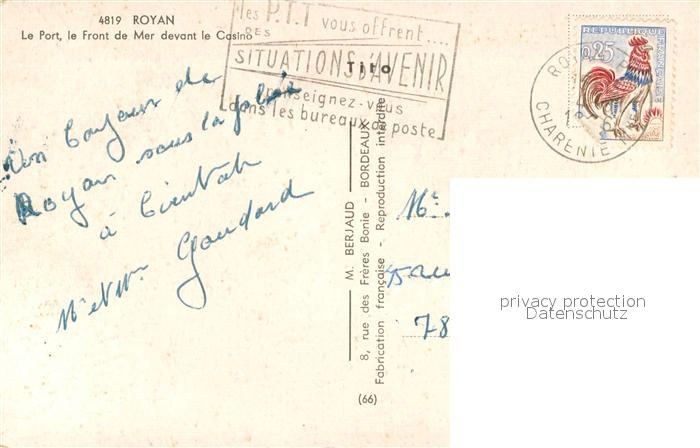 4819 ROYAN
Le Port, le Front de Mer devant le Casino
les P.T.T vous offrent....
DES
SITUATIONS D'AVENIR
Renseignez-vous
dans les bureaux de poste
Tito
REPUBLIQUE FRANÇAISE
0,25
ROYAN
CHARENTE
Un bonjour de
Royan sous la pluie
à bientôt
Mr et Mme Goudard
M. BERJAUD - BORDEAUX
8, rue des Frères Bonie
Fabrication française - Reproduction interdite
(66)
Mr
78
privacy protection
Datenschutz